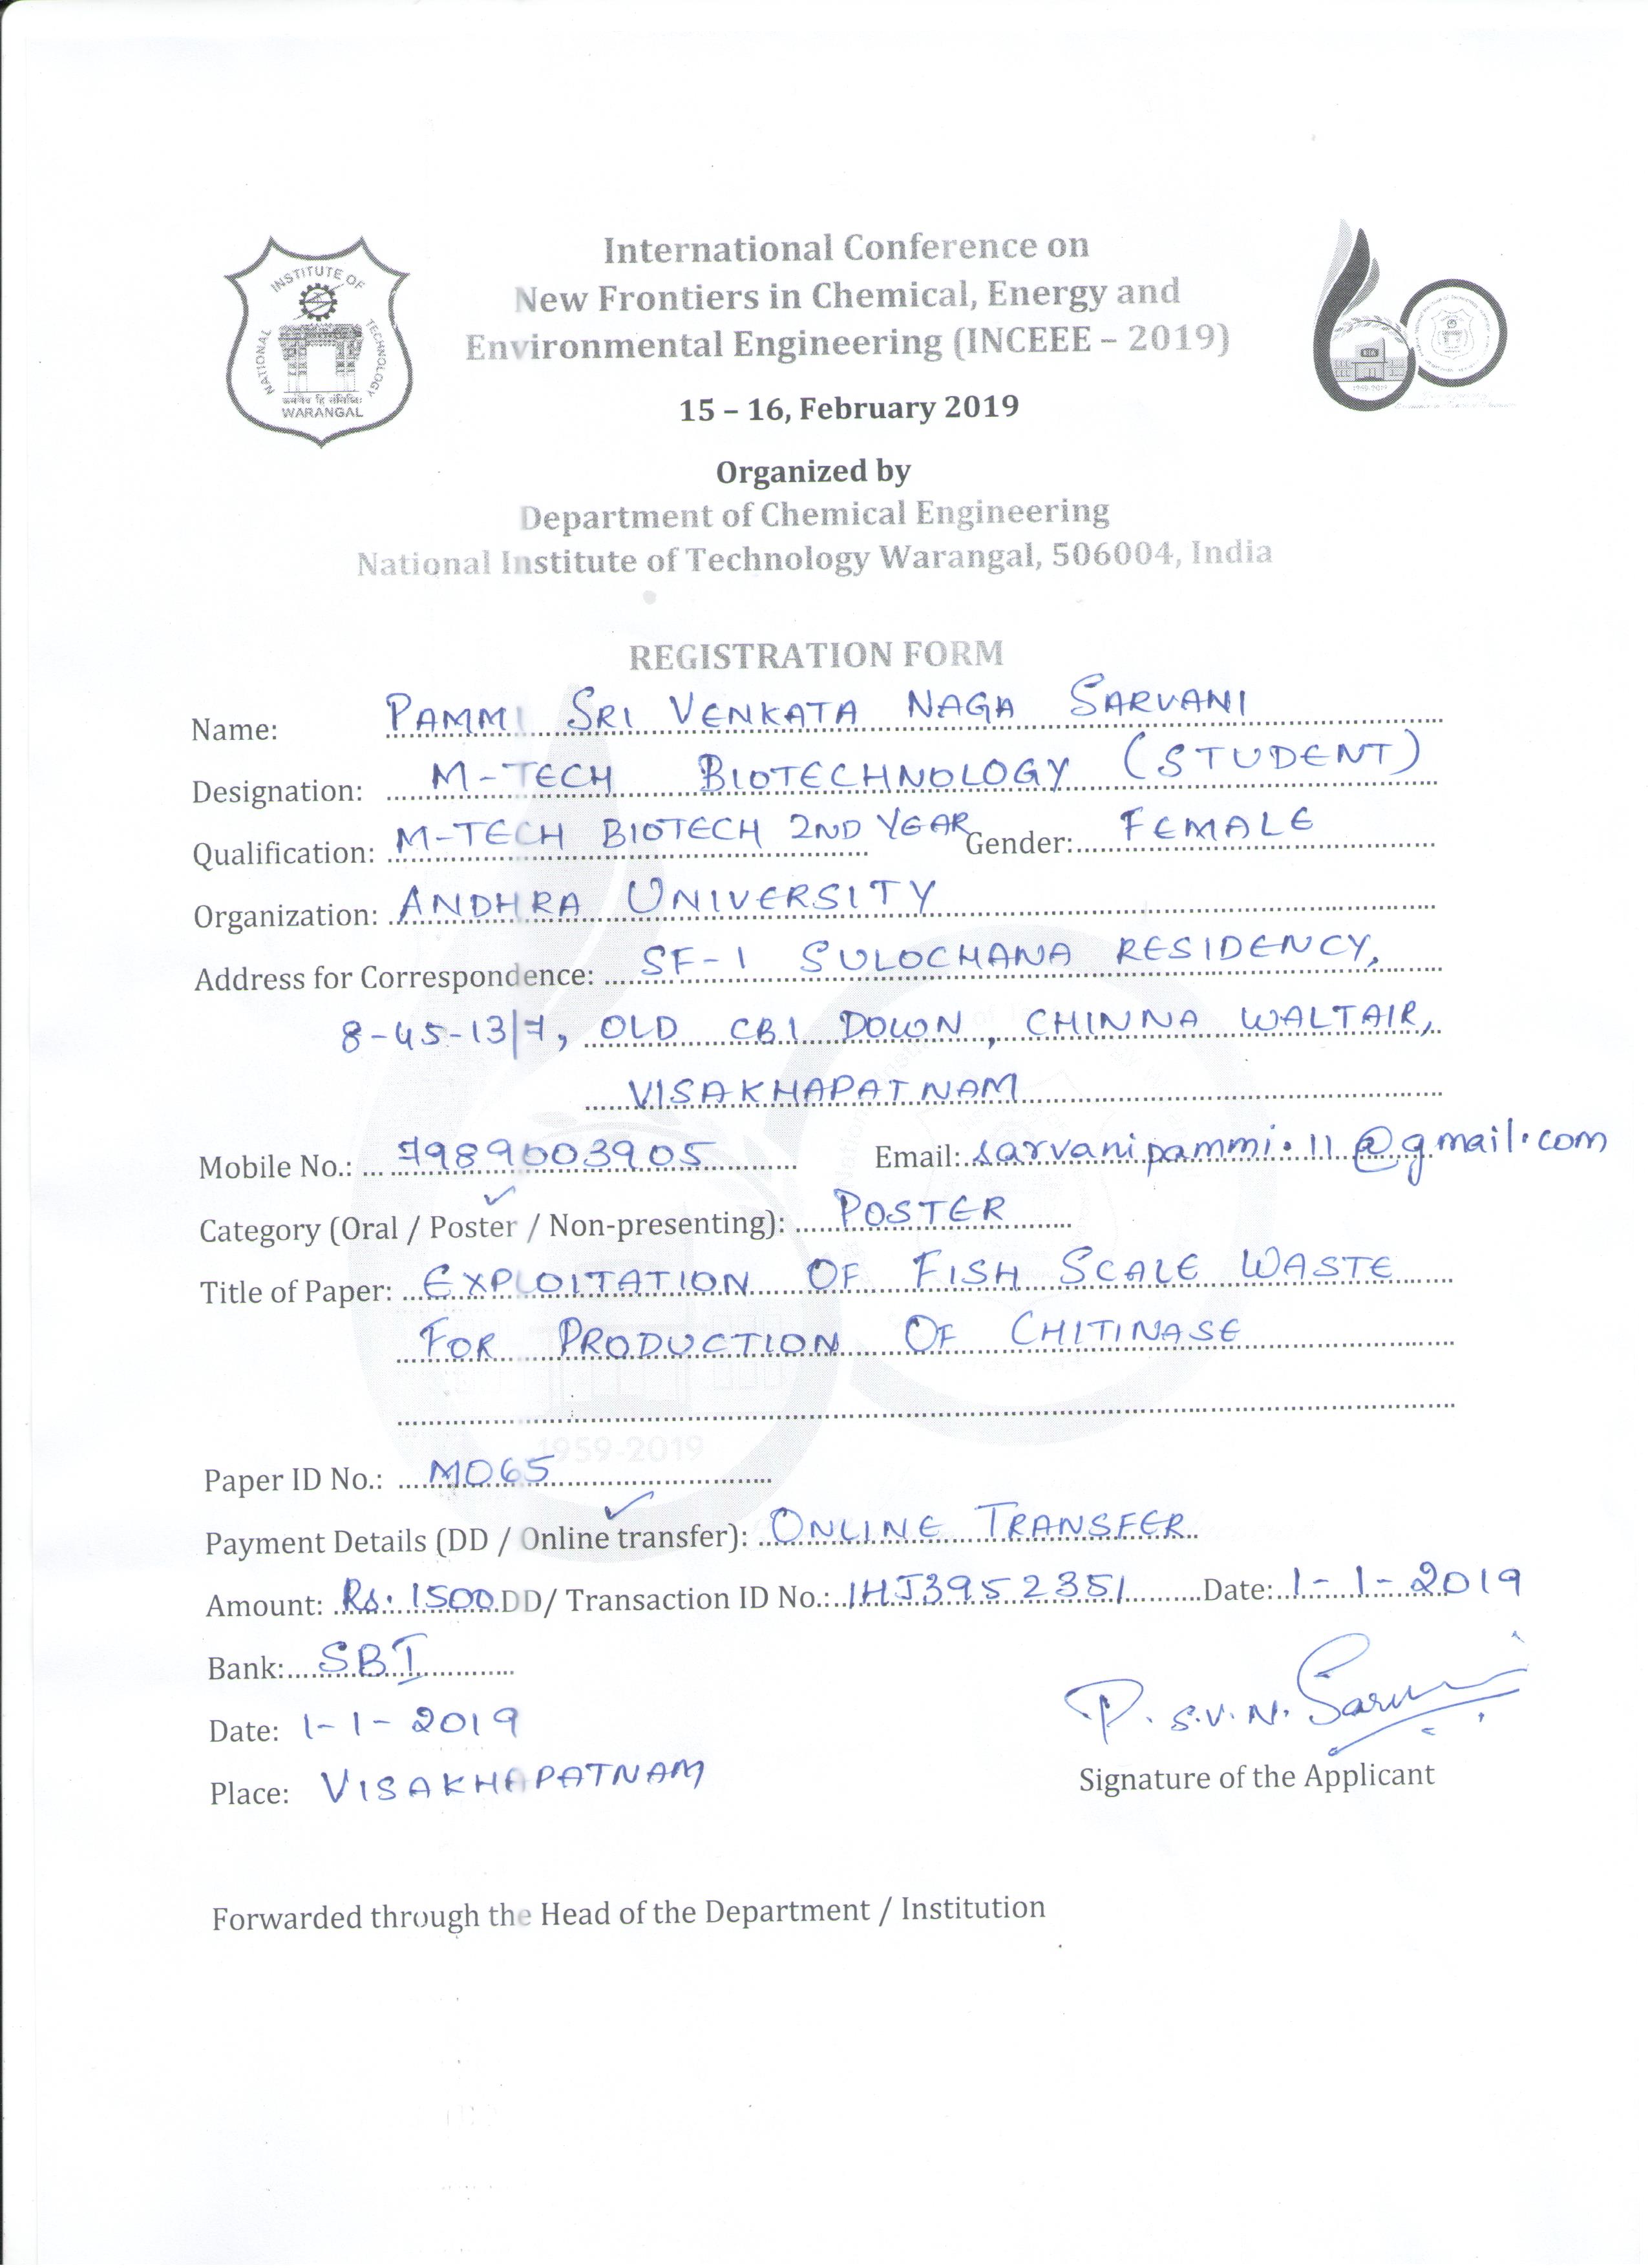 International Conference on
New Frontiers in Chemical, Energy and
Environmental Engineering (INCEEE – 2019)
15 – 16, February 2019
Organized by
Department of Chemical Engineering
National Institute of Technology Warangal, 506004, India
INSTITUTE OF
NATIONAL
TECHNOLOGY
WARANGAL
1959-2019
REGISTRATION FORM
Name: PAMMI SRI VENKATA NAGA SARVANI
Designation: M-TECH BIOTECHNOLOGY (STUDENT)
Qualification: M-TECH BIOTECH 2ND YEAR Gender: FEMALE
Organization: ANDHRA UNIVERSITY
Address for Correspondence: SF-1 SULOCHANA RESIDENCY,
8-45-13/7, OLD CBI DOWN, CHINNA WALTAIR,
VISAKHAPATNAM
Mobile No.: 7989003905 Email: sarvanipammi.11@gmail.com
Category (Oral / Poster / Non-presenting): POSTER
Title of Paper: EXPLOITATION OF FISH SCALE WASTE
FOR PRODUCTION OF CHITINASE
1959-2019
Paper ID No.: M065
Payment Details (DD / Online transfer): ONLINE TRANSFER
Amount: Rs. 1500 DD/ Transaction ID No.: IHJ3952351 Date: 1-1-2019
Bank: SBI
Date: 1-1-2019
Place: VISAKHAPATNAM
P. S.V.N. Sarvani
Signature of the Applicant
Forwarded through the Head of the Department / Institution